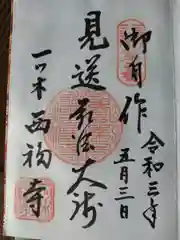 御自作
令和三年
五月三日
見送弘法大師
一ツ木西福寺